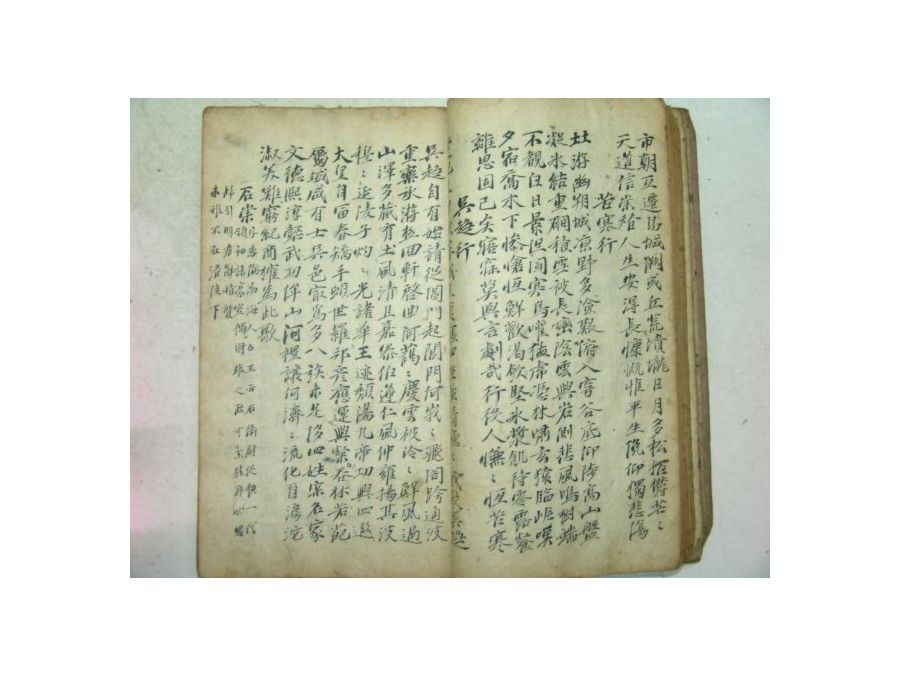 市朝互遷易城闕或丘荒墳壠日月多松栢欝芒〻
天道信崇替人生安得長慷慨惟平生俛仰獨悲傷
苦寒行
北游幽朔城凉野多險艱俯入穹谷底仰陟高山盤
凝氷結重磵積雪被長巒陰雲興岩側悲風鳴樹端
不覩白日景但聞寒鳥喧猛虎憑林嘯玄猿臨岸嘆
夕宿喬木下慘愴恒鮮歡渴飮堅氷漿飢待零露餐
離思固已矣寤寐莫與言劇哉行役人慊〻恒苦寒
吳趍行
吳趍自有始請從閶門起閶門何峩〻飛閣跨通波
重欒承游極回軒啓曲阿藹〻慶雲被泠〻鮮風過
山澤多藏育土風清且嘉泰伯導仁風仲雍揚其波
穆〻延陵子灼〻光諸華王迹頹陽九帝功興四遐
大皇自富春矯手頓世羅邦彦應運興粲若春林葩
屬城咸有士吳邑最爲多八族未足侈四姓実名家
文德熙淳懿武功侔山河禮讓何濟〻流化自滂沱
淑美難窮紀商榷爲此歌
石崇